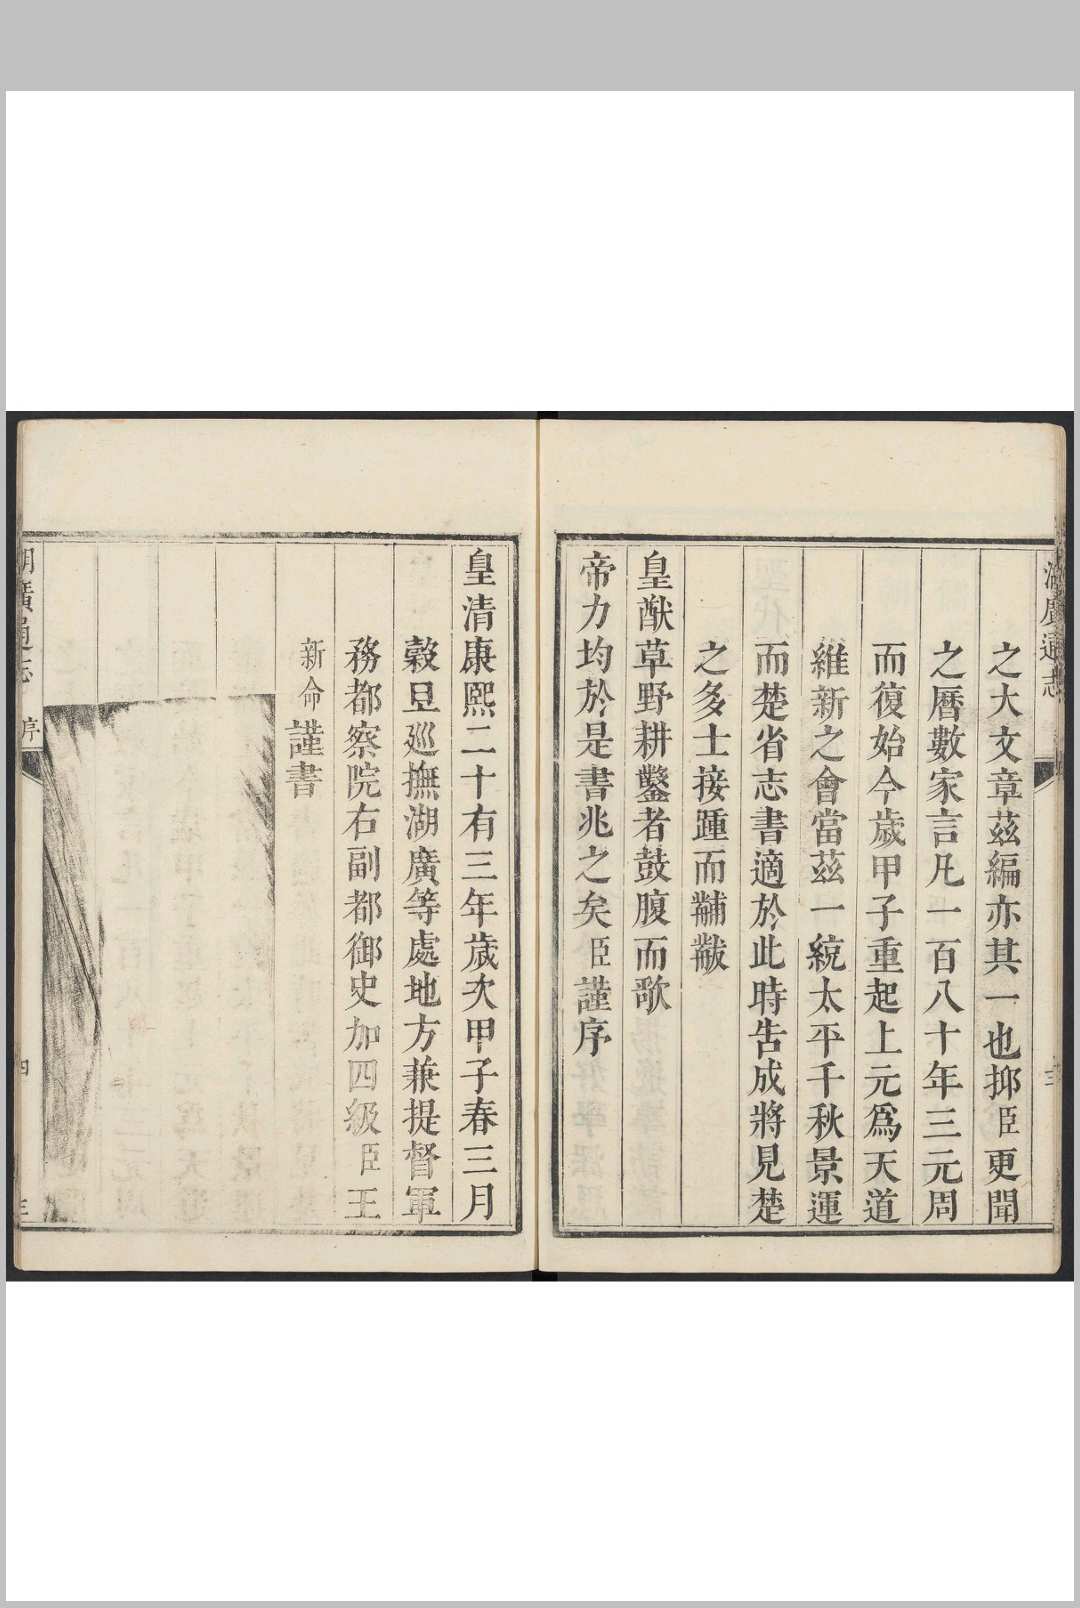 湖廣通志
之大文章茲編亦其一也抑臣更聞
之曆數家言凡一百八十年三元周
而復始今歲甲子重起上元爲天道
維新之會當茲一統太平千秋景運
而楚省志書適於此時告成將見楚
之多士接踵而黼黻
皇猷草野耕鑿者鼓腹而歌
帝力均於是書兆之矣臣謹序
皇清康熙二十有三年歲次甲子春三月
穀旦巡撫湖廣等處地方兼提督軍
務都察院右副都御史加四級臣王
新命謹書
湖廣通志 序 四